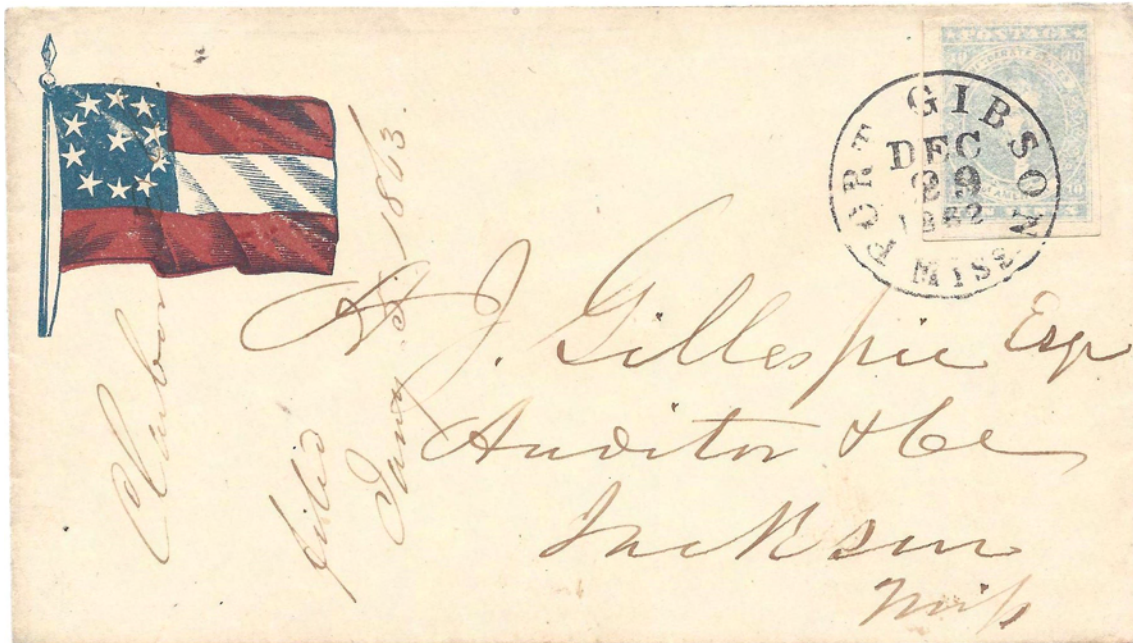 POSTAGE
10 10
PORT GIBSON
DEC
29
1862
MISS
A J. Gillespie Esqr
Auditor &c
Jackson
Miss
filed
Jany 5. 1863.